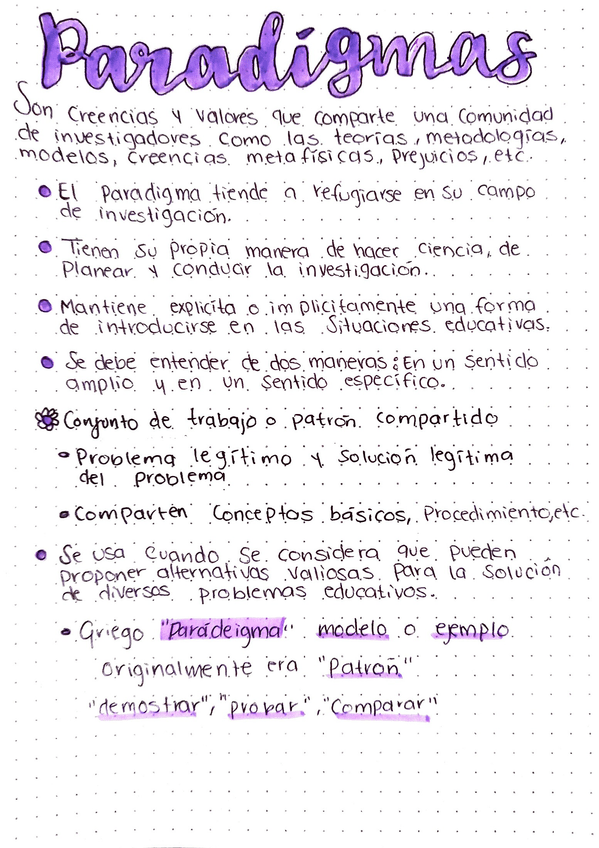 Paradigmas
Son creencias y valores que comparte una comunidad
de investigadores como las teorías, metodologías,
modelos, creencias metafísicas, prejuicios, etc.
El Paradigma tiende a refugiarse en su campo
de investigación.
Tienen su propia manera de hacer ciencia, de
Planear y conducir la investigación.
Mantiene explicita o implicitamente una forma
de introducirse en las situaciones educativas.
Se debe entender de dos maneras: En un sentido
amplio y en un sentido específico.
Conjunto de trabajo o patrón compartido
Problema legítimo y solución legítima
del problema
Comparten conceptos básicos, Procedimiento, etc.
Se usa cuando se considera que pueden
proponer alternativas valiosas para la solución
de diversos problemas educativos.
Griego "Parádeigma" modelo o ejemplo
originalmente era "Patrón"
"demostrar", "probar", "Comparar"